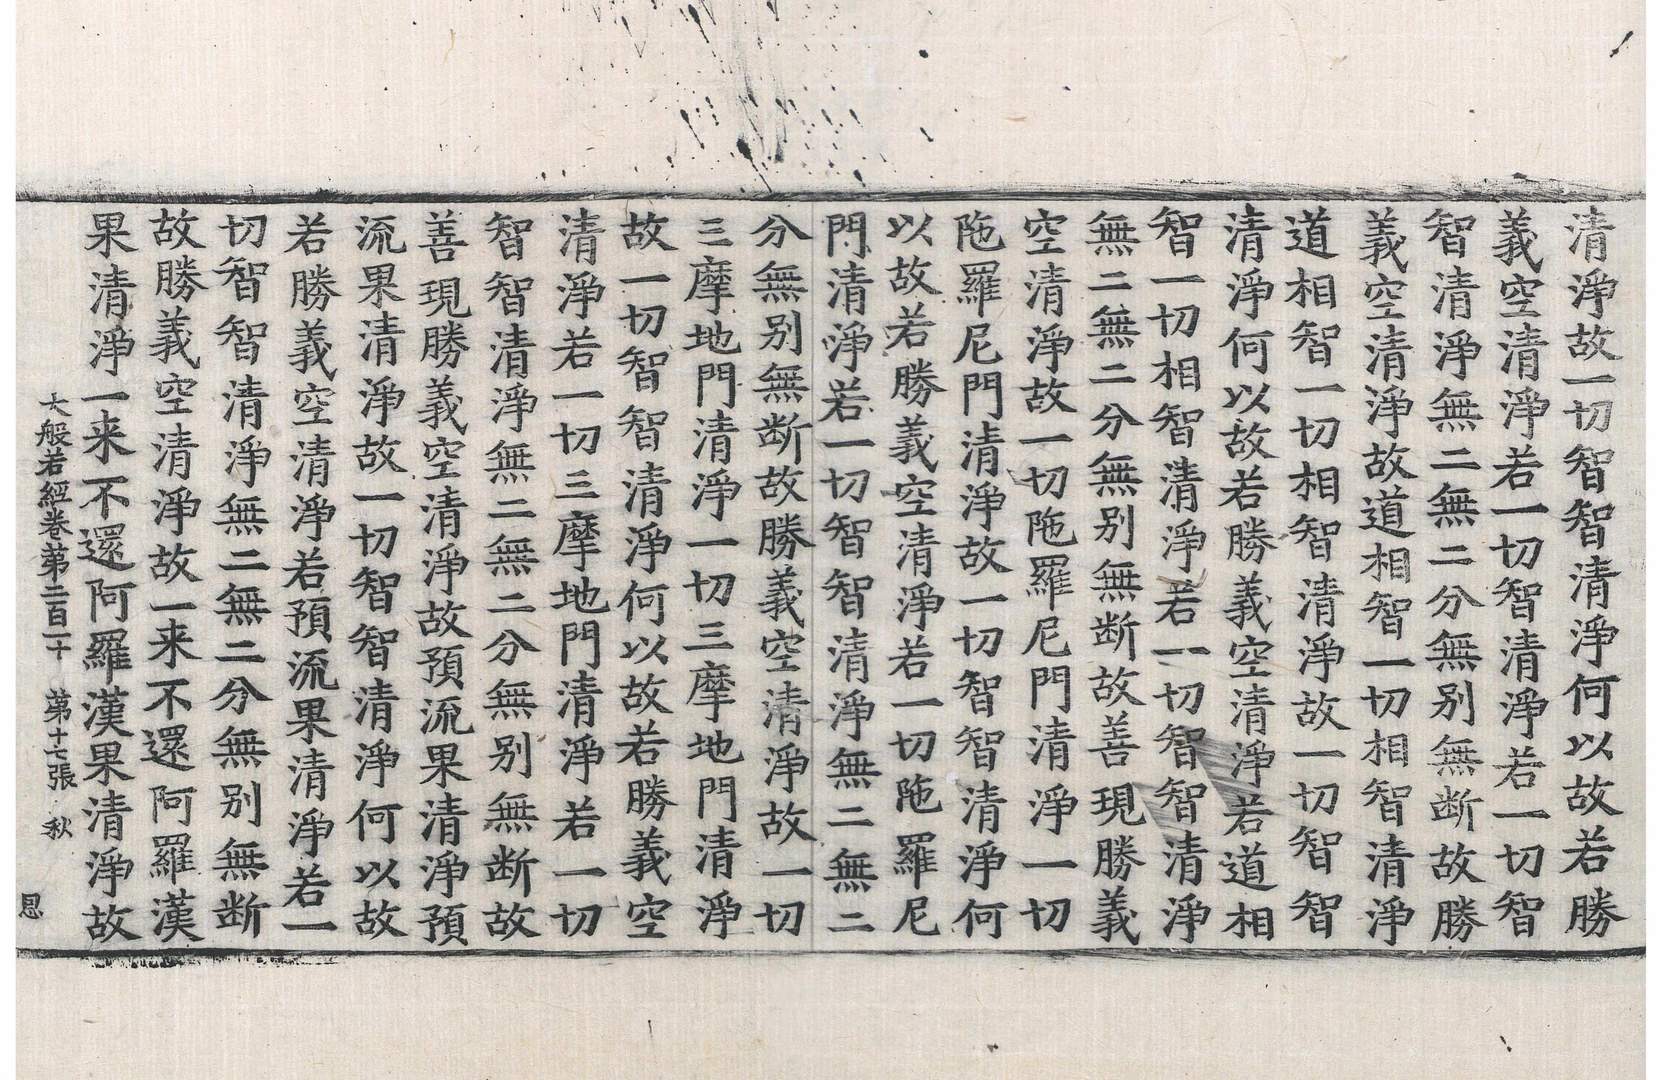 清淨故一切智智清淨何以故若勝
義空清淨若一切智清淨若一切智
智清淨無二無二分無别無断故勝
義空清淨故道相智一切相智清淨
道相智一切相智清淨故一切智智
清淨何以故若勝義空清淨若道相
智一切相智清淨若一切智智清淨
無二無二分無别無断故善現勝義
空清淨故一切陁羅尼門清淨一切
陁羅尼門清淨故一切智智清淨何
以故若勝義空清淨若一切陁羅尼
門清淨若一切智智清淨無二無二
分無别無断故勝義空清淨故一切
三摩地門清淨一切三摩地門清淨
故一切智智清淨何以故若勝義空
清淨若一切三摩地門清淨若一切
智智清淨無二無二分無别無断故
善現勝義空清淨故預流果清淨預
流果清淨故一切智智清淨何以故
若勝義空清淨若預流果清淨若一
切智智清淨無二無二分無别無断
故勝義空清淨故一来不還阿羅漢
果清淨一来不還阿羅漢果清淨故
大般若經卷第二百一十 第十七張 秋
恩